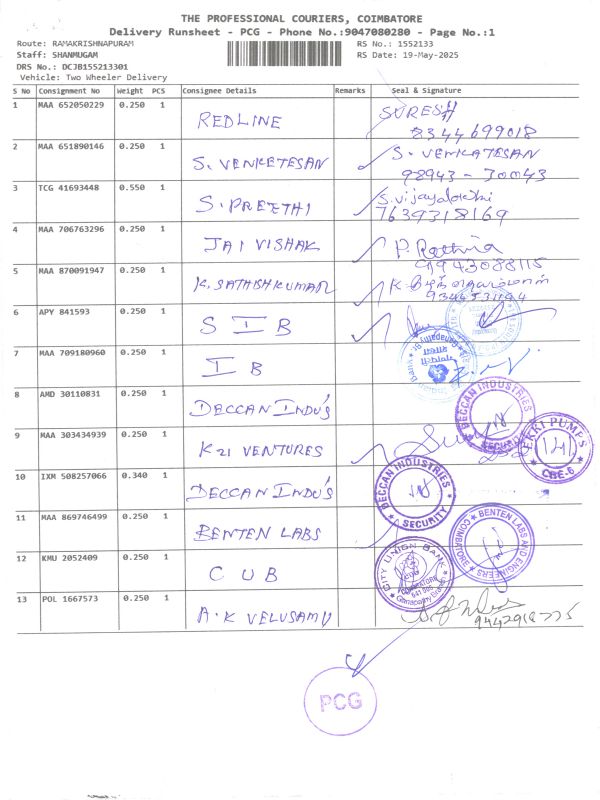 THE PROFESSIONAL COURIERS, COIMBATORE
Delivery Runsheet - PCG - Phone No.:9047080280 - Page No.:1
Route: RAMAKRISHNAPURAM
RS No.: 1552133
Staff: SHANMUGAM
RS Date: 19-May-2025
DRS No.: DCJB155213301
Vehicle: Two Wheeler Delivery
S No Consignment No Weight PCS Consignee Details Remarks Seal & Signature
1 MAA 652050229 0.250 1 REDLINE SURESH
8344699018
2 MAA 651890146 0.250 1 S. VENKETESAN S. VENKATESAN
98943-30043
3 TCG 41693448 0.550 1 S. PREETHI S.Vijayalakshmi
7639318169
4 MAA 706763296 0.250 1 JAI VISHAK P. Rathna
9943088115
5 MAA 870091947 0.250 1 K. SATHISHKUMAR K
6 APY 841593 0.250 1 S I B
7 MAA 709180960 0.250 1 I B
8 AMD 30110831 0.250 1 DECCAN INDU'S DECCAN INDUSTRIES SECURITY
9 MAA 303434939 0.250 1 K21 VENTURES
PUMPS 141 CBE-6
10 IXM 508257066 0.340 1 DECCAN INDU'S DECCAN INDUSTRIES SECURITY
11 MAA 869746499 0.250 1 BENTEN LABS BENTEN LABS AND ENGINEERS COIMBATORE
12 KMU 2052409 0.250 1 C U B CITY UNION BANK COIMBATORE 641 006 Ganapathy Branch
13 POL 1667573 0.250 1 A.K VELUSAMY
9442918775
PCG